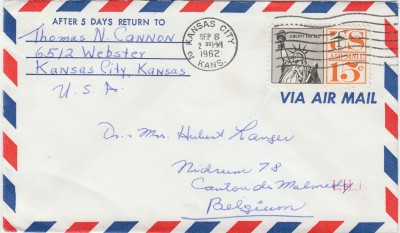 AFTER 5 DAYS RETURN TO
Thomas N. CANNON
6512 Webster
Kansas City, Kansas
U.S.A.
KANSAS CITY
SEP 8
PM
1962
KANS.
LIBERTY FOR ALL
US
AIR MAIL
15¢
VIA AIR MAIL
Dr. & Mrs. Hubert Langer
Nidrum 78
Canton de Malmedy
Belgium